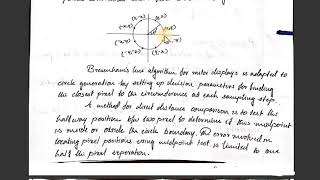 (-y,x)
(y,x)
(-x,y)
(x,y)
(-y,-x)
Bresenham's line algorithm for raster displays is adapted to
circle generation by setting up decision parameters for finding
the closest pixel to the circumference at each sampling step.
A method for direct distance comparison is to test the
halfway position b/w two pixel to determine if this midpoint
is inside or obside the circle boundary. The error involved in
locating pixel positions using midpoint test is limited to one
half the pixel seperation.